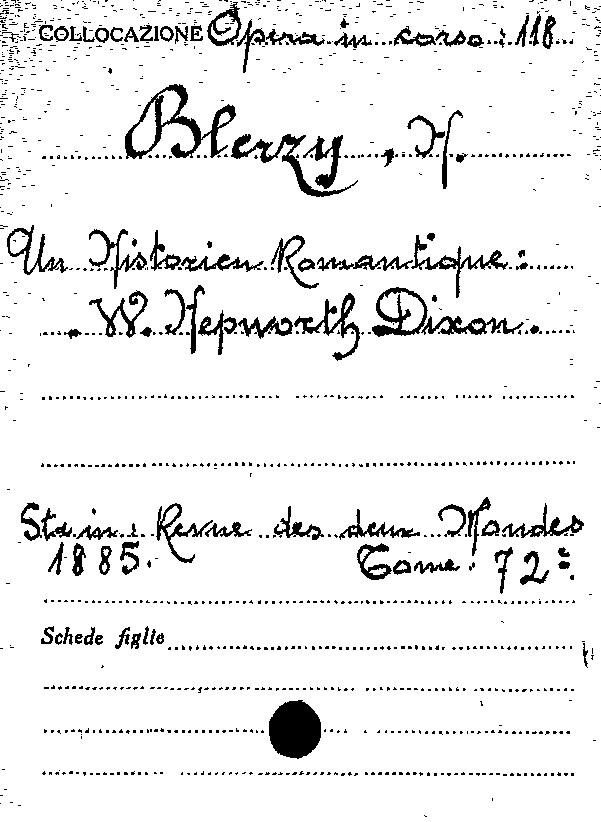 COLLOCAZIONE Opera in corso: 118
Blerzy, H.
Un Historien Romantique:
. W. Hepworth Dixon.
Sta in: Revue des deux Mondes
1885. Tome: 72º.
Schede figlie